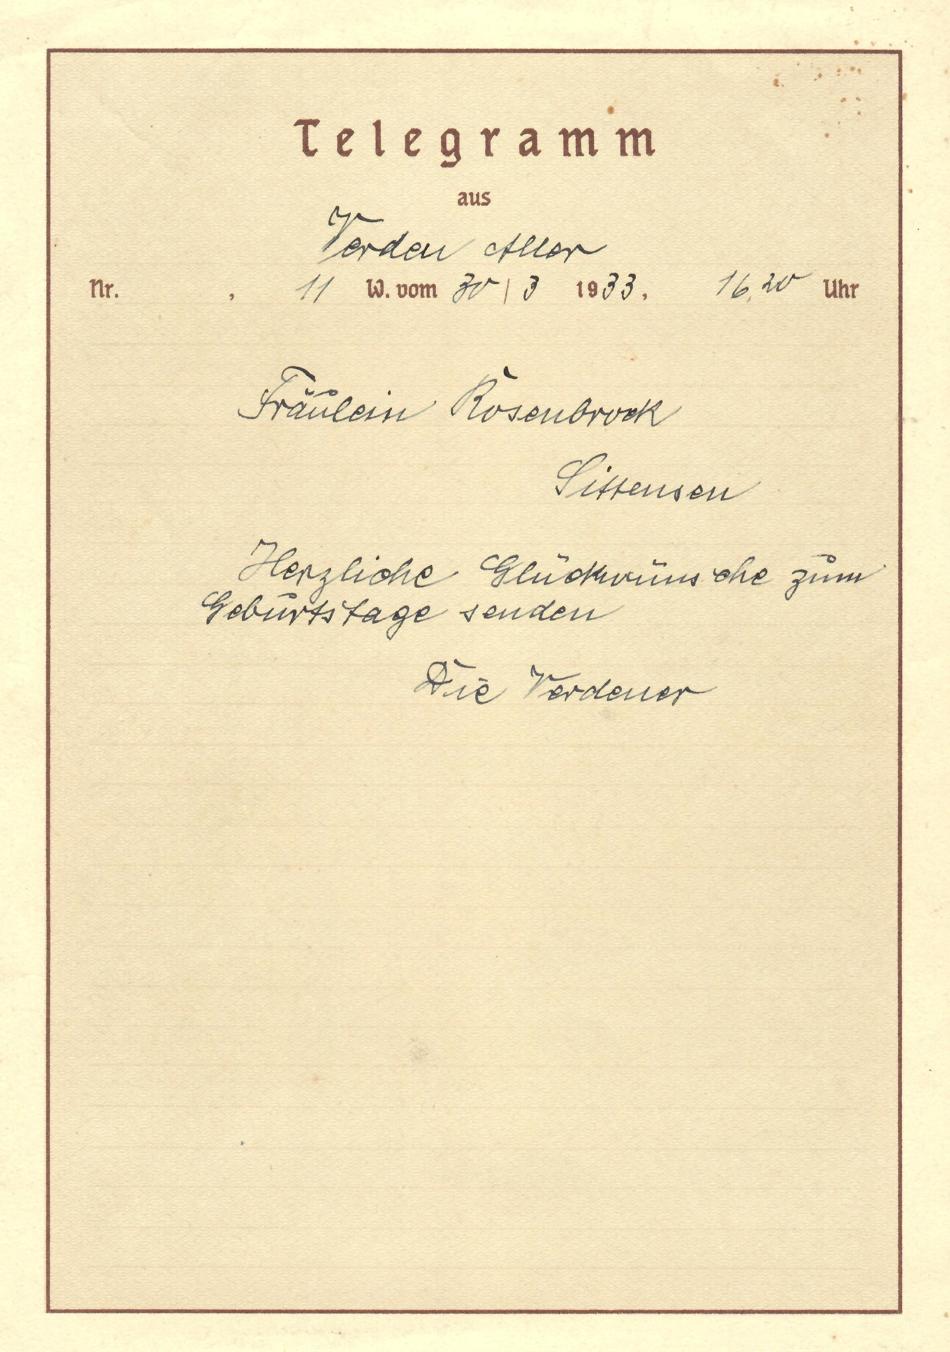 Telegramm
aus
Verden Aller
Nr. , 11 W. vom 30 | 3 1933, 16,20 Uhr
Fräulein Rosenbrock
Sittensen
Herzliche Glückwünsche zum
Geburtstage senden
Die Verdener